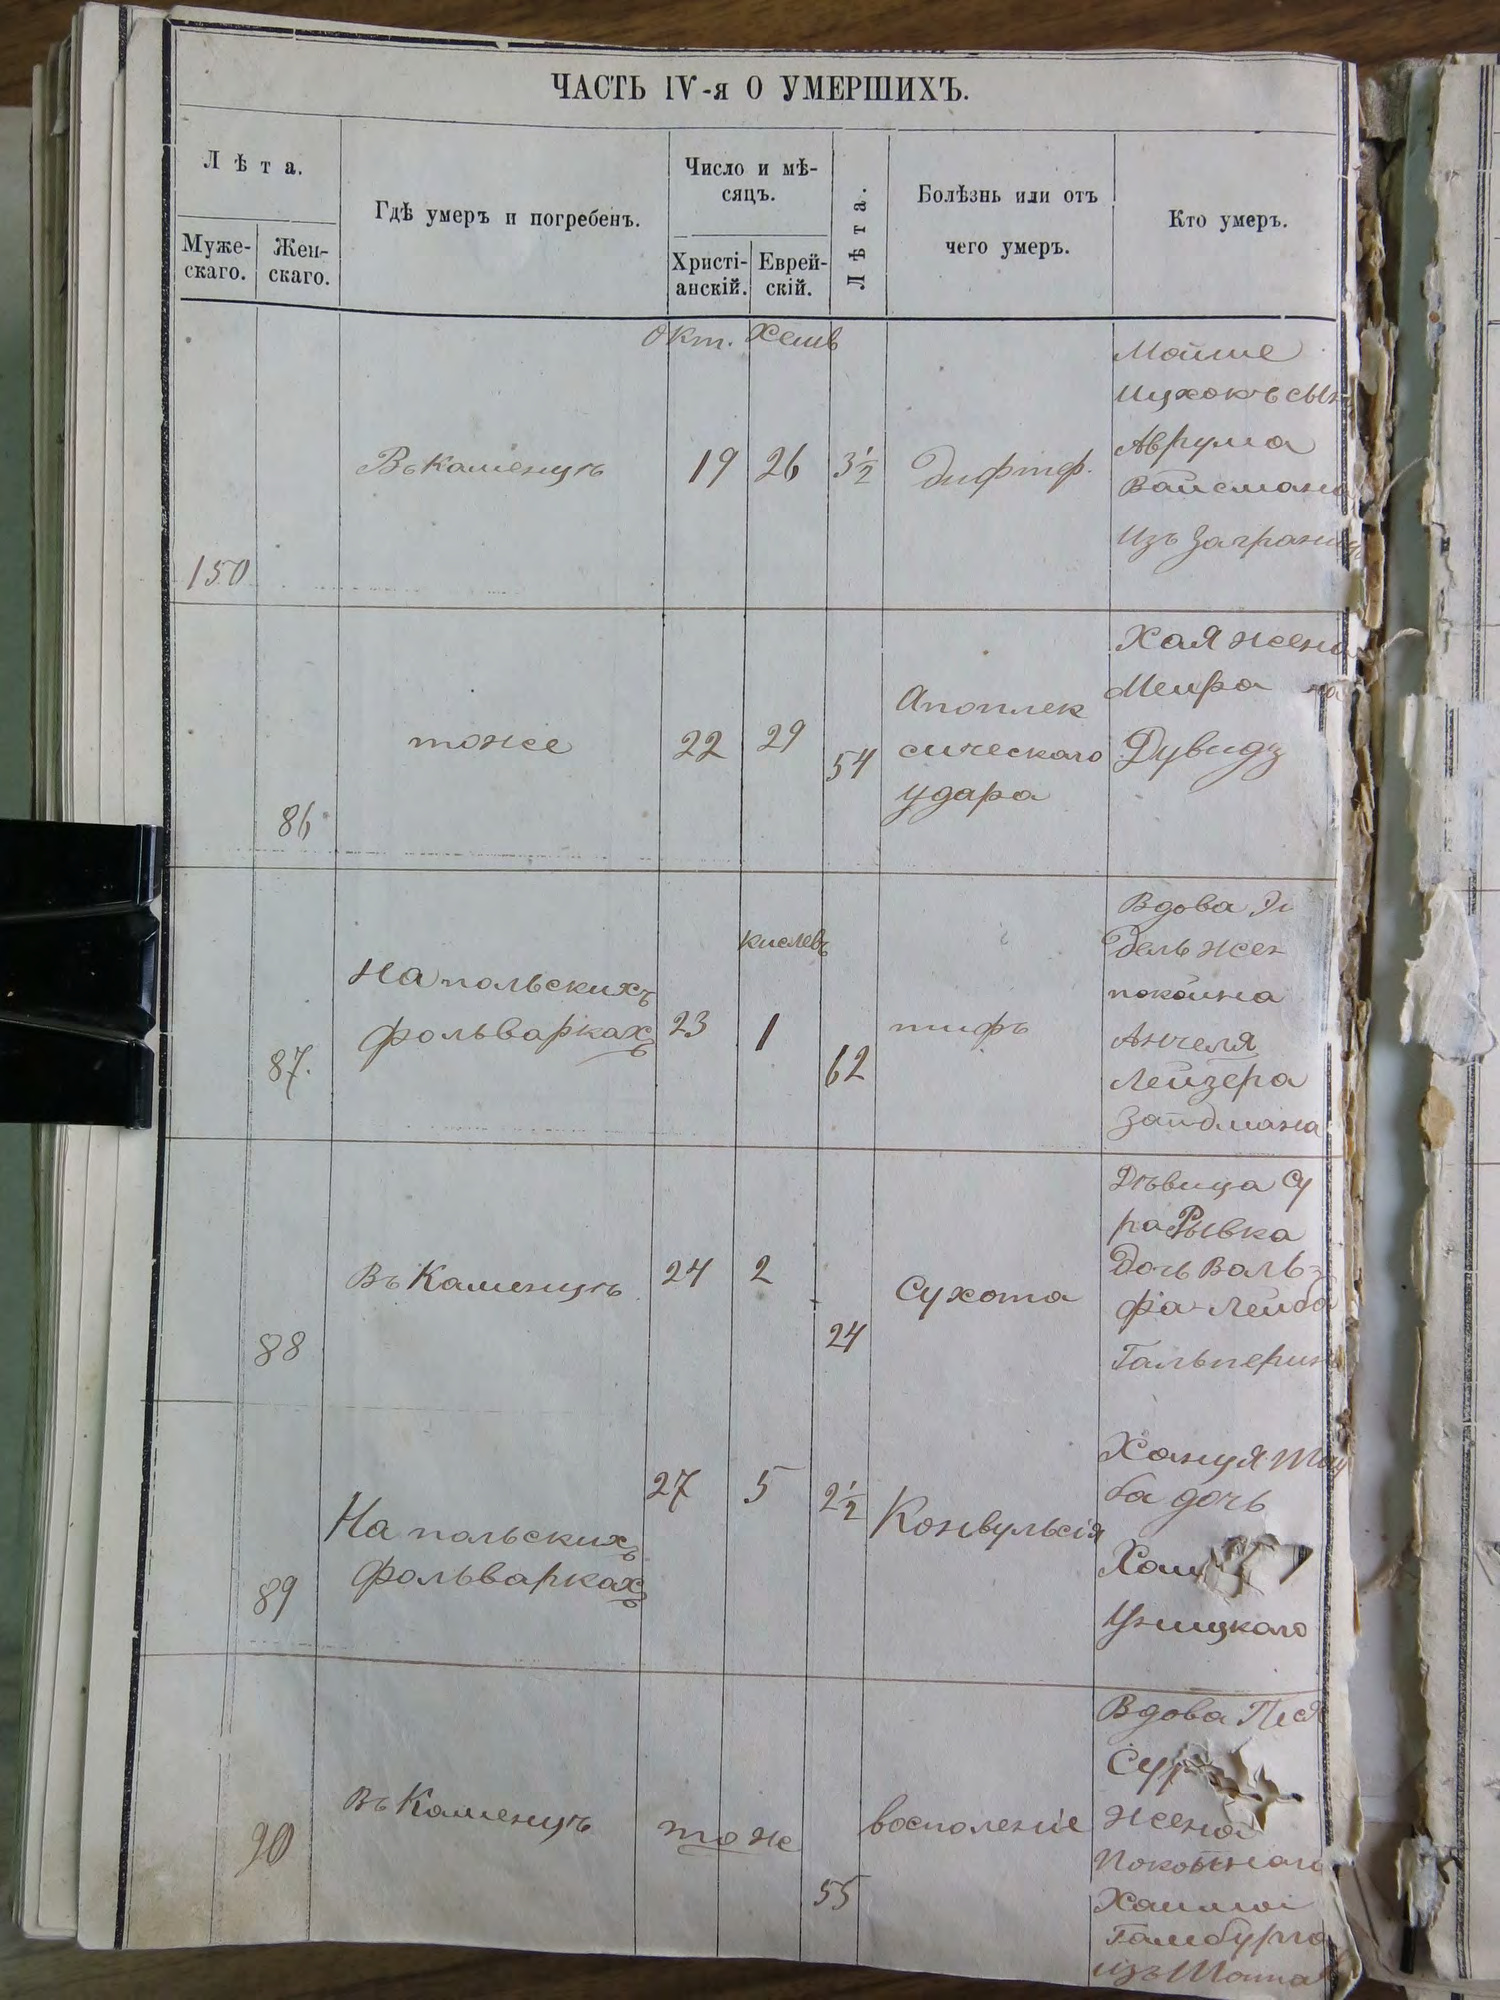 ЧАСТЬ IV-я О УМЕРШИХЪ.
Лѣта.
Муже-
скаго.
Жен-
скаго.
Гдѣ умеръ и погребенъ.
Число и мѣ-
сяцъ.
Христі-
анскій.
Еврей-
скій.
Лѣта.
Болѣзнь или отъ
чего умеръ.
Кто умеръ.
Окт. Хешв
150
Въ Каменцѣ
19
26
3 1/2
Дифтф.
Мойше
Ицхокъ сынъ
Аврума
Вайсмана
изъ Заграницы
86
тоже
22
29
54
Апоплек
сического
удара
Хая жена
Меира
Дувидз
87.
На польскихъ
фольваркахъ
23
кислевъ
1
62
тифъ
Вдова
бель жен
покойна
Анчеля
Лейзера
Зайдмана
88
Въ Каменцѣ
24
2
24
Сухота
Дѣвица Су
ра Рывка
Дочь Воль-
фа-Лейба
Гальперин
89
На польскихъ
фольваркахъ
27
5
2 1/2
Конвульсія
Ханця
ба дочь
Хаи
Уницкаго
90
Въ Каменцѣ
тож
55
восполеніе
Вдова Песя
Сур
жена
Покойнаго
Хаима
Гамбурга
изъ